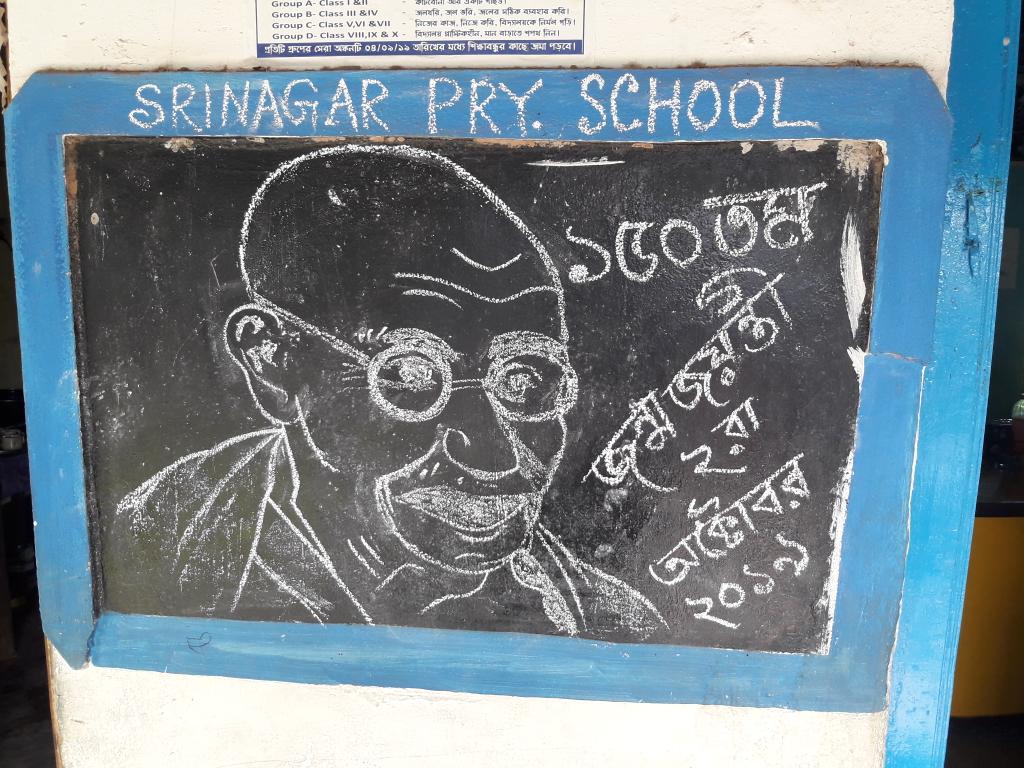 Group A- Class I &II
Group B- Class III &IV - জলধরি, জল ভরি, জলের সঠিক ব্যবহার করি।
Group C- Class V,VI &VII - নিজের কাজ, নিজে করি, বিদ্যালয়কে নির্মল গড়ি।
Group D- Class VIII,IX & X - বিদ্যালয় প্লাস্টিকহীন, মান বাড়াতে শপথ নিন।
প্রতিটি গ্রুপের সেরা অঙ্কনটি ০৪/০৯/১৯ তারিখের মধ্যে শিক্ষাবন্ধুর কাছে জমা পড়বে।
SRINAGAR PRY. SCHOOL
১৫০তম
জন্মজয়ন্তী
২রা
অক্টোবর
২০১৯